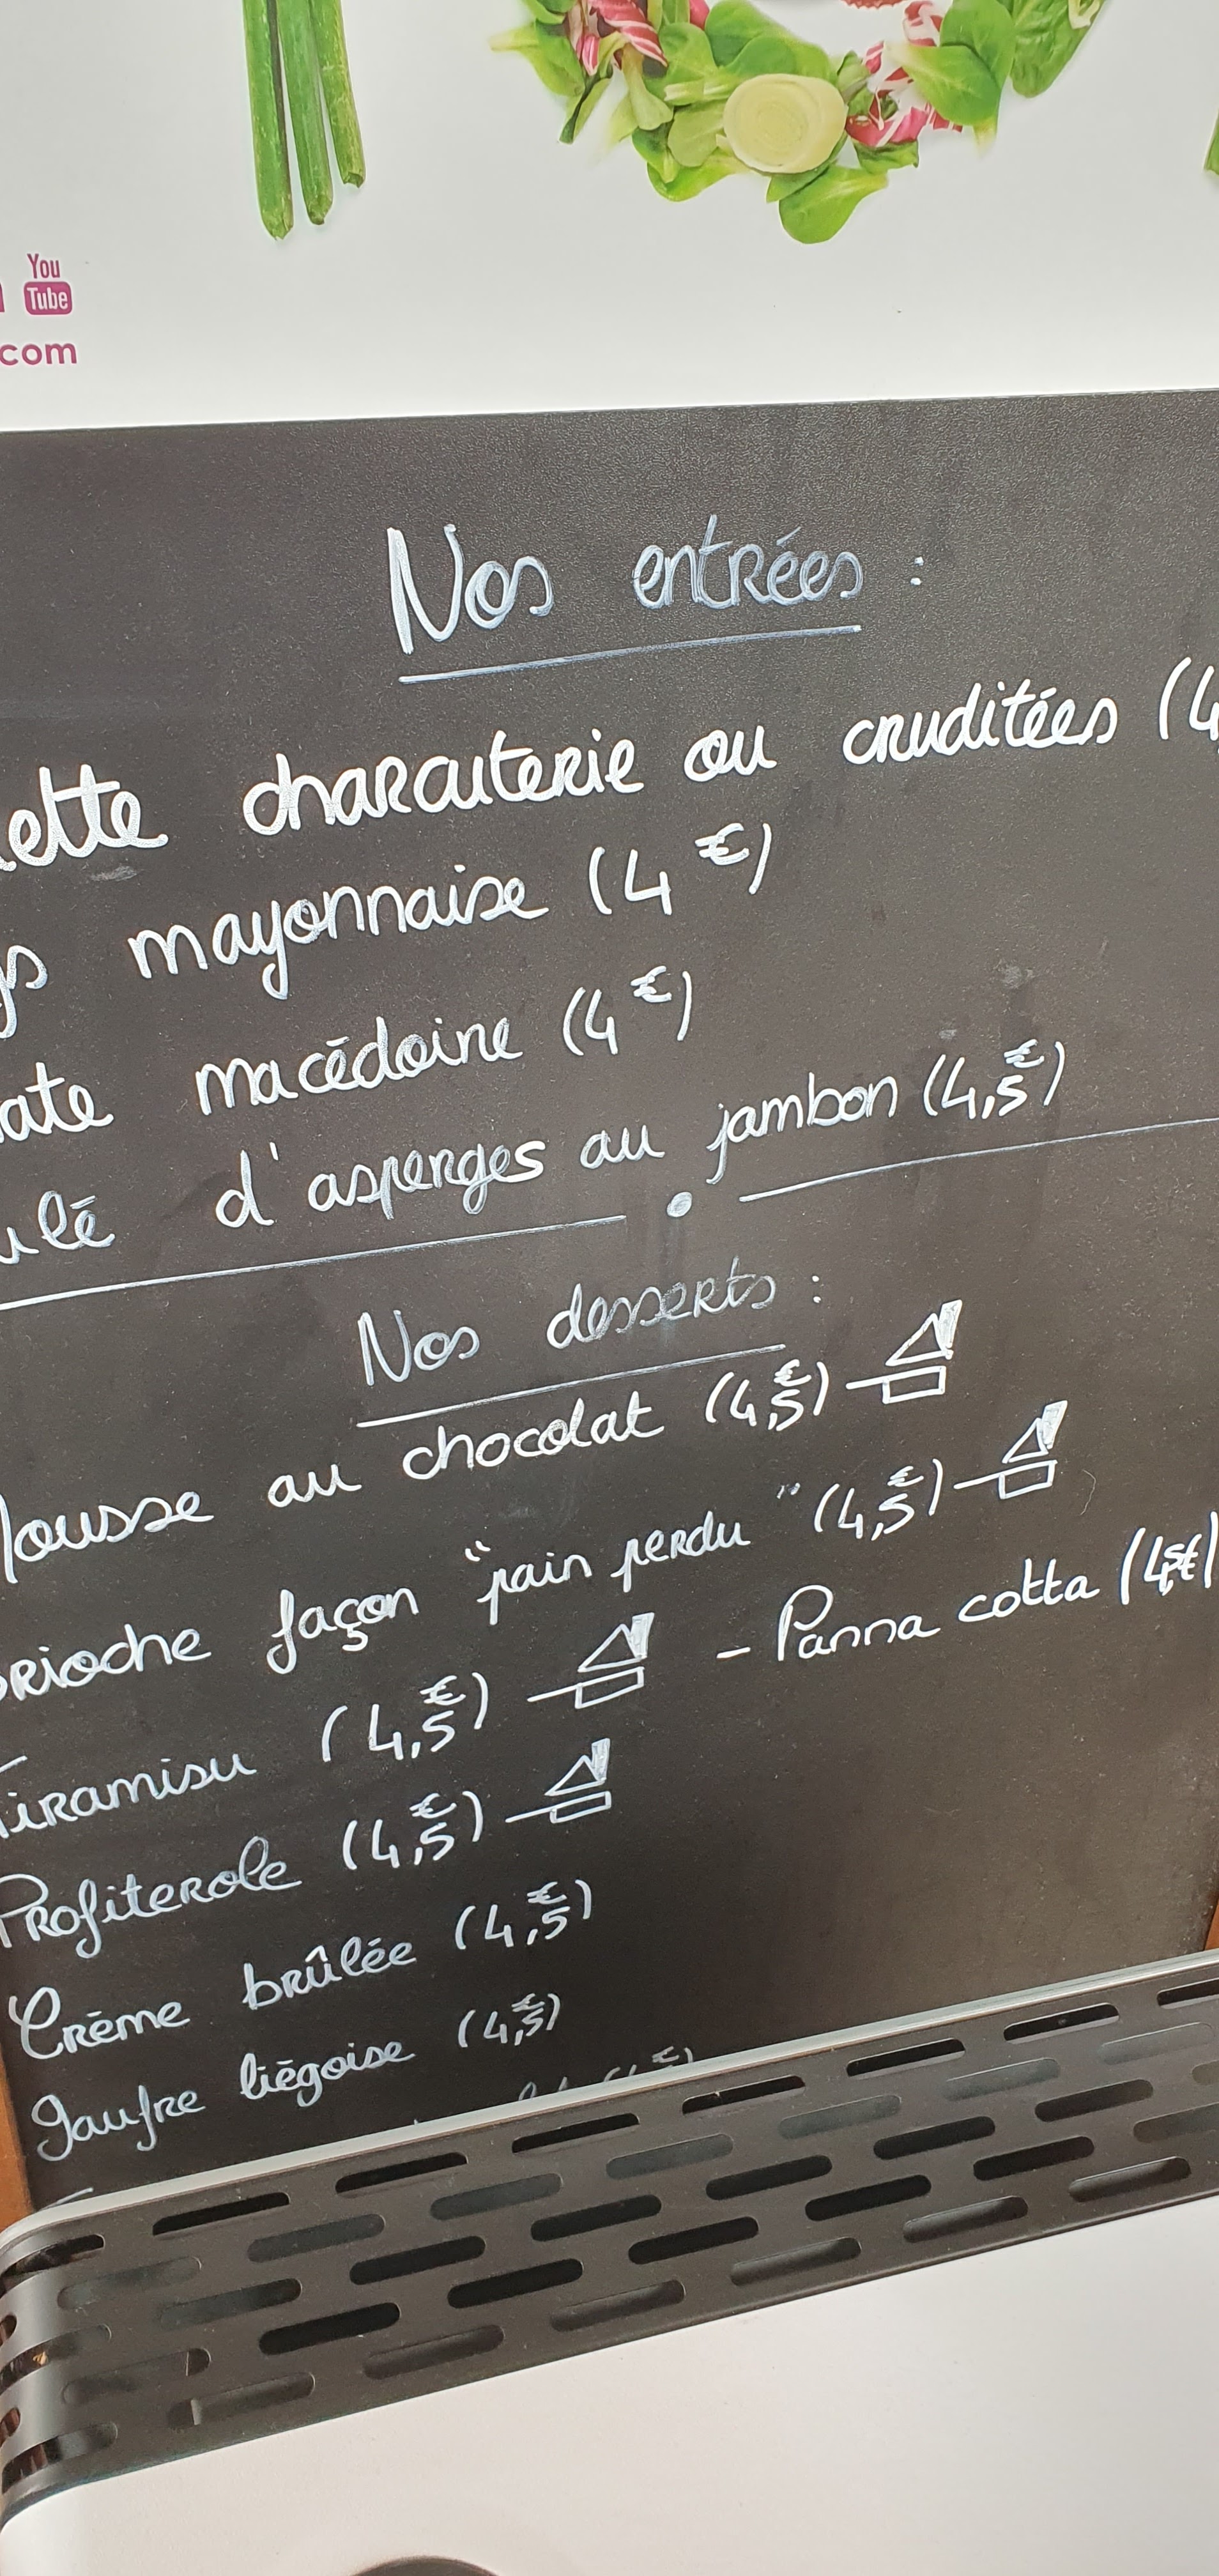 You
Tube
com
Nos entrées :
charcuterie ou cruditées (4
mayonnaise (4 €)
macédoine (4 €)
d'asperges au jambon (4,5 €)
Nos desserts :
Mousse au chocolat (4,5 €)
brioche façon "pain perdu" (4,5 €)
Tiramisu (4,5 €) - Panna cotta (4,5 €)
Profiterole (4,5 €)
Crème brûlée (4,5 €)
gaufre liégoise (4,5 €)